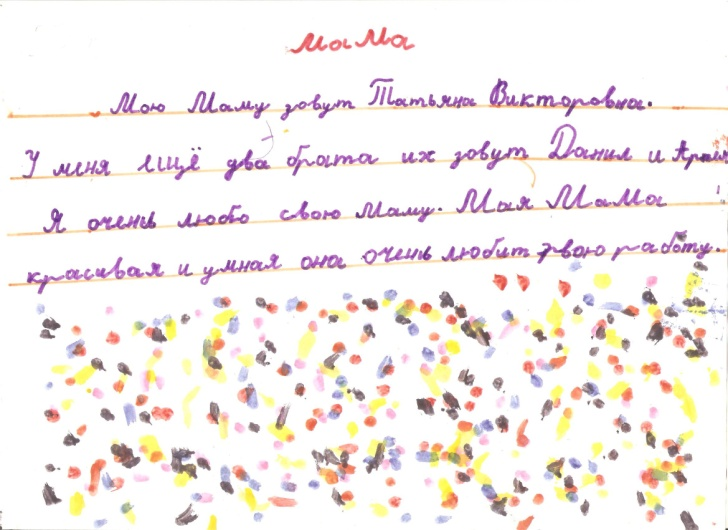 МаМа
Мою Маму зовут Татьяна Викторовна.
У меня ещё два брата их зовут Данил и
Я очень люблю свою Маму. Мая МаМа
красивая и умная она очень любит свою работу.